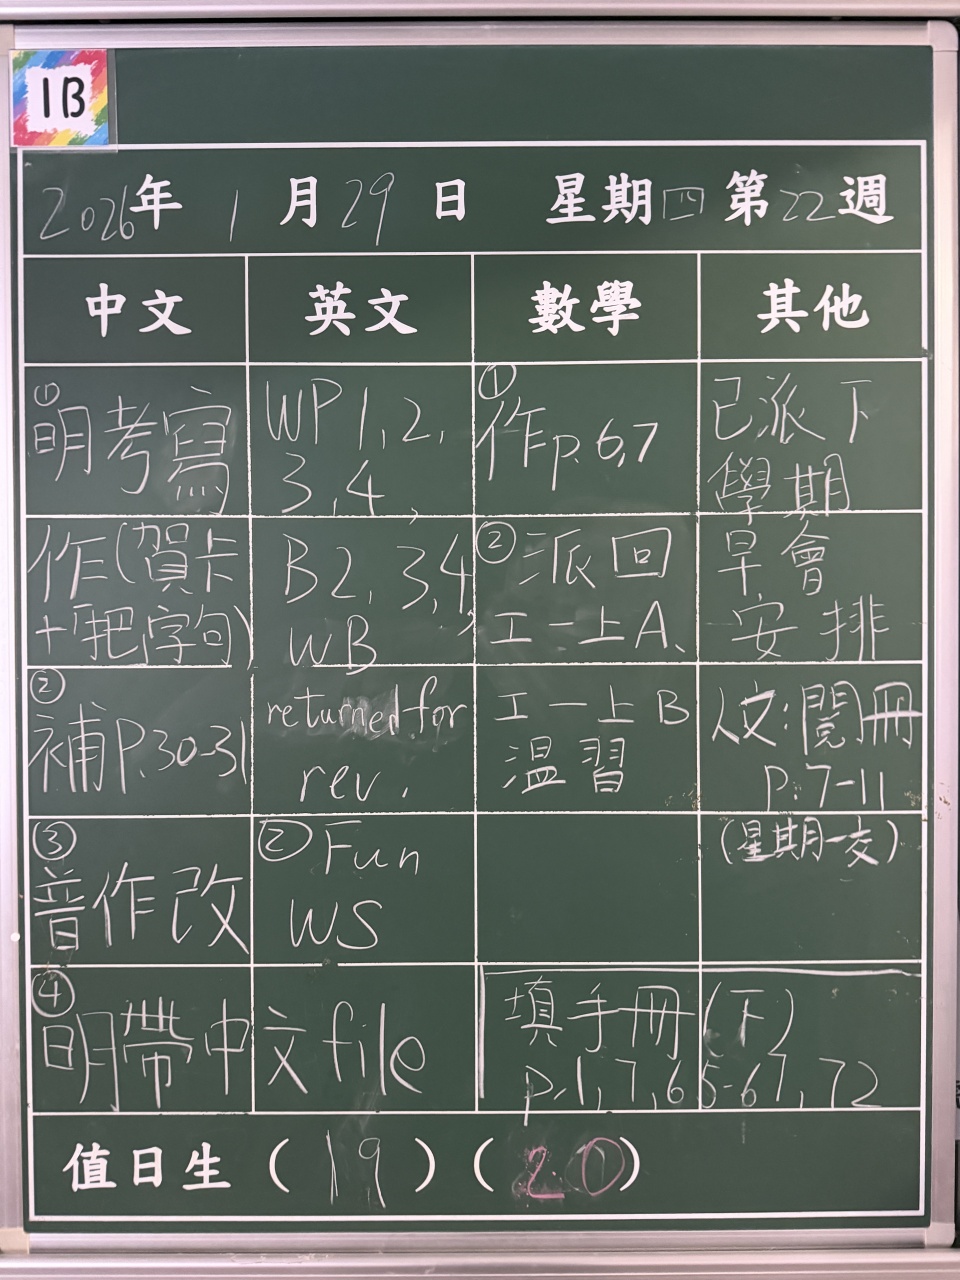 1B
2026年 1月29日 星期四 第22週
中文 英文 數學 其他
①
明考寫
作(賀卡
+「把」字句)
②
補P.30-31
③
普作改
④
明帶中文file
WP1,2,
3,4,
B2,3,4,
WB
returned for
rev.
② Fun
WS
①
作p.6,7
② 派回
工一上A、
工一上B
溫習
已派下
學期
早會
安排
人文:閱冊
P.7-11
(星期一交)
填手冊(下)
p.1,7,65-67,72
值日生(19)(20)